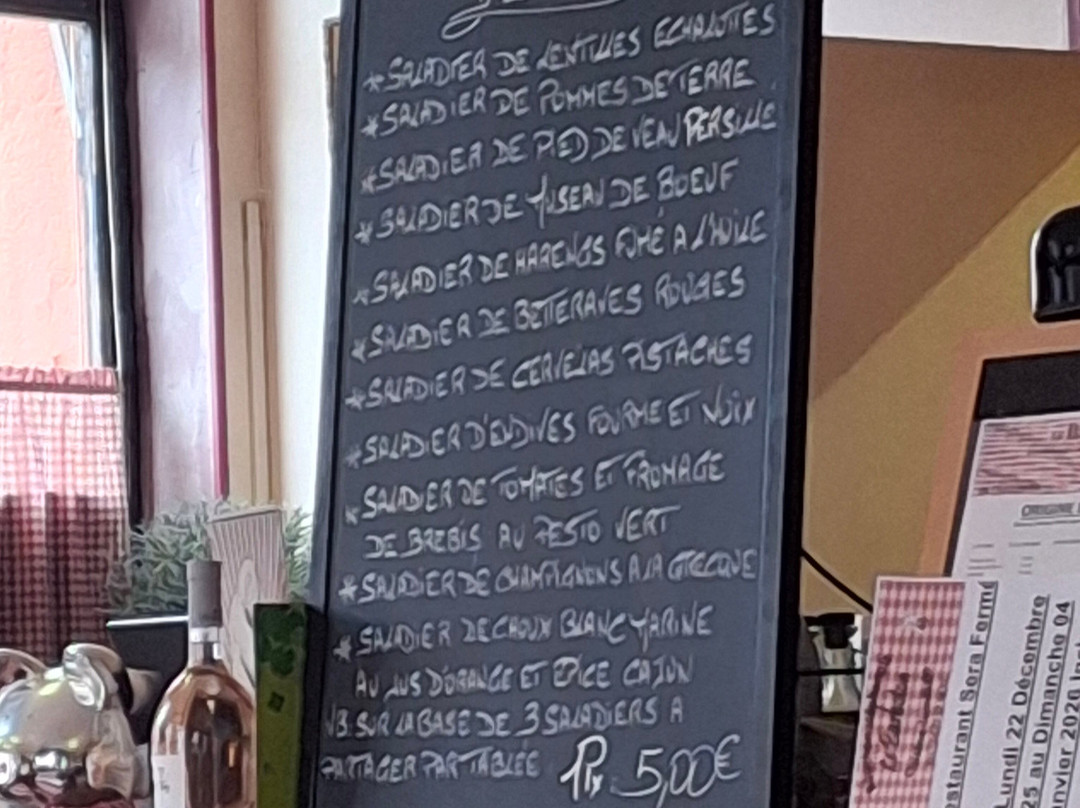 *SALADIER DE LENTILLES ECHALOTTES
*SALADIER DE POMMES DE TERRE
*SALADIER DE PIED DE VEAU PERSILLE
*SALADIER DE MUSEAU DE BOEUF
*SALADIER DE HARENGS FUMÉ A L'HUILE
*SALADIER DE BETTERAVES ROUGES
*SALADIER DE CERVELAS PISTACHES
*SALADIER D'ENDIVES FOURME ET NOIX
*SALADIER DE TOMATES ET FROMAGE
DE BREBIS AU PESTO VERT
*SALADIER DE CHAMPIGNONS A LA GRECQUE
*SALADIER DE CHOUX BLANC MARINÉ
AU JUS D'ORANGE ET EPICE CAJUN
NB. SUR LA BASE DE 3 SALADIERS A
PARTAGER PAR TABLÉE Prix 5,00€
ORIGINE
staurant Sera Fermé
Lundi 22 Décembre
25 au Dimanche 04
anvier 2026